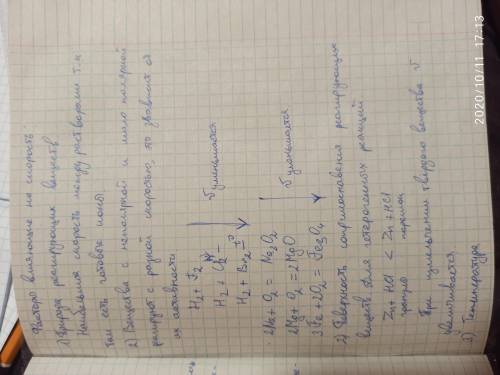 Факторы влияющие на скорость
1) Природа реагирующих веществ
Наибольшая скорость между растворами т.к
там есть готовые ионы.
2) Вещества с неполярной и мало полярной
реагируют с разной скоростью, это зависит от
их активности
H₂ + F₂
H₂ + Cl₂
H₂ + Br₂ t°
υ уменьшается
2Na + O₂ = Na₂O₂
2Mg + O₂ = 2MgO
3Fe + 2O₂ = Fe₃O₄
υ уменьшается
2) Поверхность соприкосновения реагирующих
веществ (для гетерогенных реакций
Zn + HCl < Zn + HCl
гранула порошок
При измельчении твердого вещества υ
увеличивается
3) Температура
2020/10/11 17:13